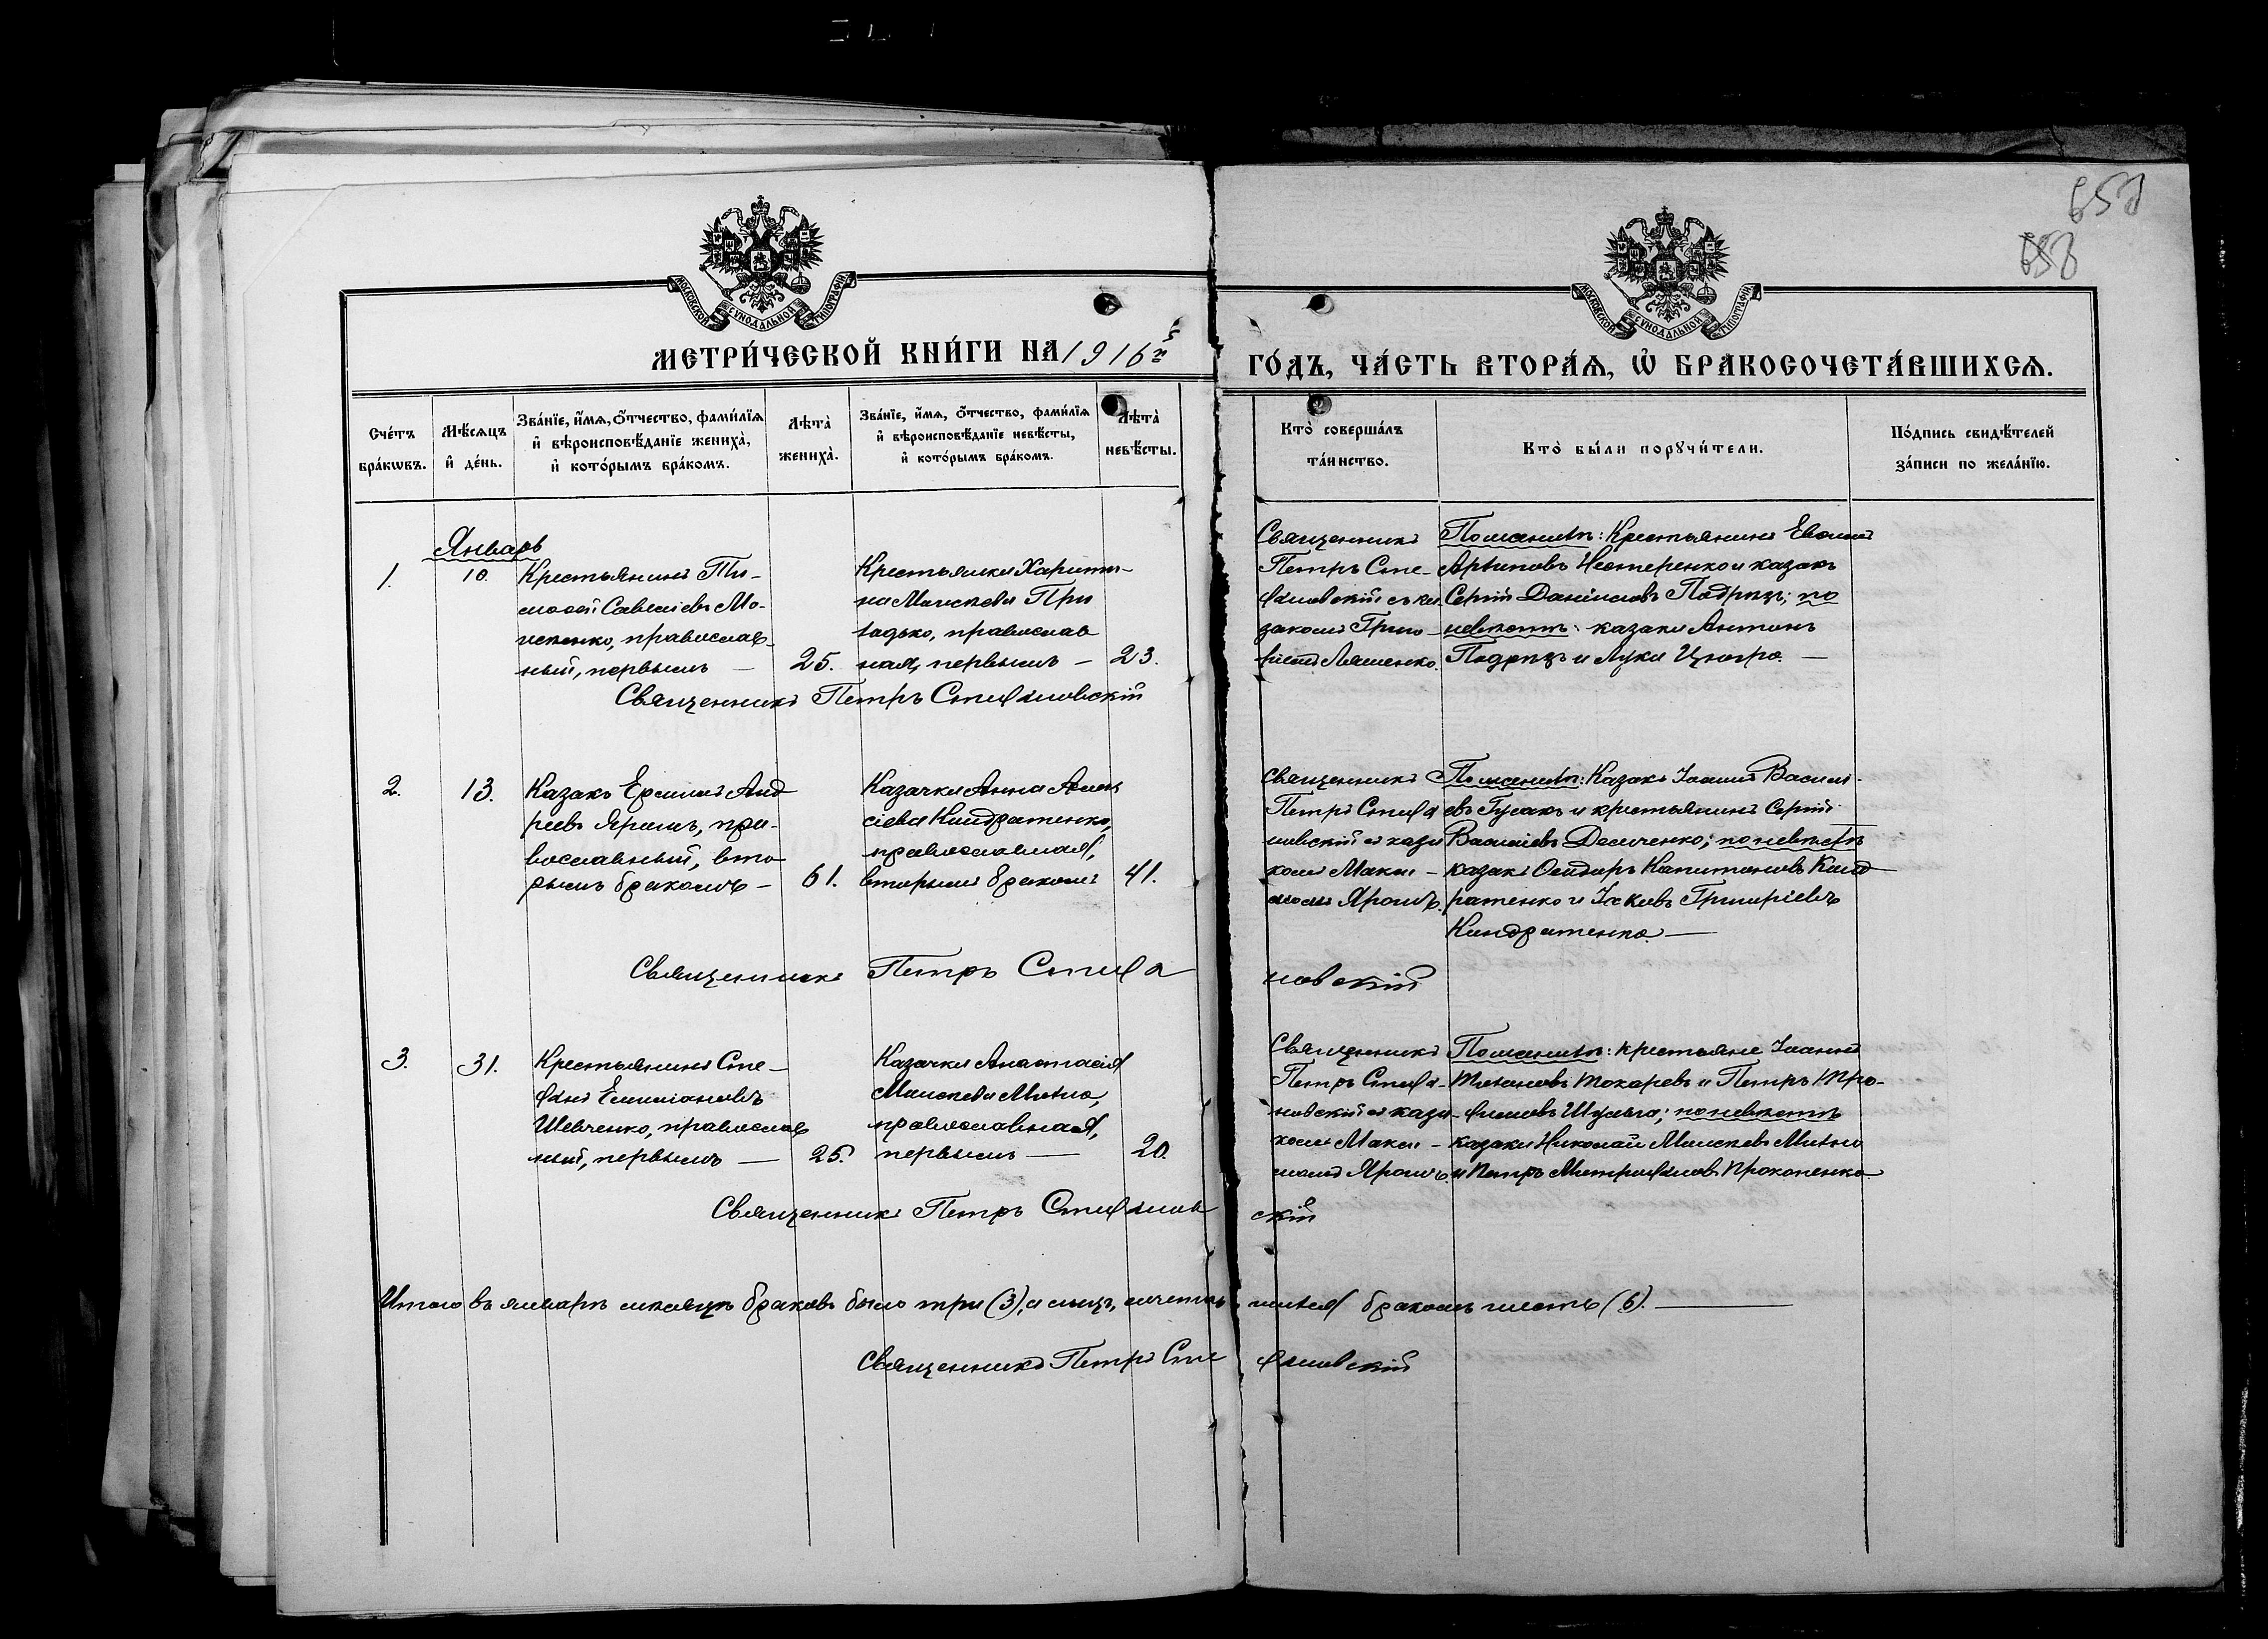 658
МОСКОВСКОЙ СѴНОДАЛЬНОЙ ТИПОГРАФІИ
МОСКОВСКОЙ СѴНОДАЛЬНОЙ ТИПОГРАФІИ
МЕТРИ́ЧЕСКОЙ КНИ́ГИ НА 1916 й
ГО́ДЪ, ЧА́СТЬ ВТОРА́Ѧ, Ѽ БРАКОСОЧЕТА́ВШИХСѦ.
Сче́тъ бра́кѡвъ.
Мѣ́сѧцъ и҆ де́нь.
Зва́нїе, и҆́мѧ, ѻ҆́тчество, фами́лїѧ и҆ вѣроисповѣ́данїе жениха̀, и҆ кото́рымъ бра́комъ.
Лѣта̀ жениха̀.
Зва́нїе, и҆́мѧ, ѻ҆́тчество, фами́лїѧ и҆ вѣроисповѣ́данїе невѣ́сты, и҆ кото́рымъ бра́комъ.
Лѣта̀ невѣ́сты.
Кто̀ соверша́лъ та́инство.
Кто̀ бы́ли порꙋчи́тели.
По́дпись свидѣ́телей за́писи по жела́нїю.
Январь
1.
10.
Крестьянинъ Ти-
моѳей Савеліевъ Мо-
исеенко, православ-
ный, первымъ —
25.
Крестьянка Харити-
на Моисеева При
ходько, православ
ная, первымъ —
23.
Священникъ
Петръ Сте-
фановскій съ ка
закомъ Григо-
ріемъ Ляшенко.
По женихѣ: Крестьянинъ
Архиповъ Нестеренко и казакъ
Сергій Даніиловъ Подрѣзъ; по
невѣстѣ: казаки Антонъ
Подрѣзъ и Лука Цюпро. —
Священникъ Петръ Стефановскій
2.
13.
Казакъ Ермилъ Анд
реевъ Ярошъ, пра-
вославный, вто
рымъ бракомъ —
61.
Казачка Анна
сіева Кондратенко,
православная,
вторымъ бракомъ
41.
Священникъ
Петръ Стефа
новскій съ каза
комъ Макси-
момъ Ярошъ.
По женихѣ: Казакъ Іоаннъ Василь-
евъ Гусакъ и крестьянинъ Сергій
Василіевъ Демченко; по невѣстѣ
казаки Сидоръ Капитоновъ Конд
ратенко и Іаковъ Григоріевъ
Кондратенко. —
Священникъ Петръ Стефановскій
3.
31.
Крестьянинъ Сте-
фанъ Емиліановъ
Шевченко, православ
ный, первымъ —
25.
Казачка Анастасія
Моисеева Михно,
православная,
первымъ —
20.
Священникъ
Петръ Стефа-
новскій съ каза-
комъ Макси-
момъ Ярошъ.
По женихѣ: крестьяне Іоаннъ
Токаревъ и Петръ Тро-
фимовъ Шульга; по невѣстѣ
казаки Николай Моисеевъ Михно
и Петръ Митрофановъ Прокопенко
Священникъ Петръ Стефановскій
Итого въ январѣ мѣсяцѣ браковъ было три (3), а лицъ, сочетавшихся бракомъ шесть (6). —
Священникъ Петръ Стефановскій